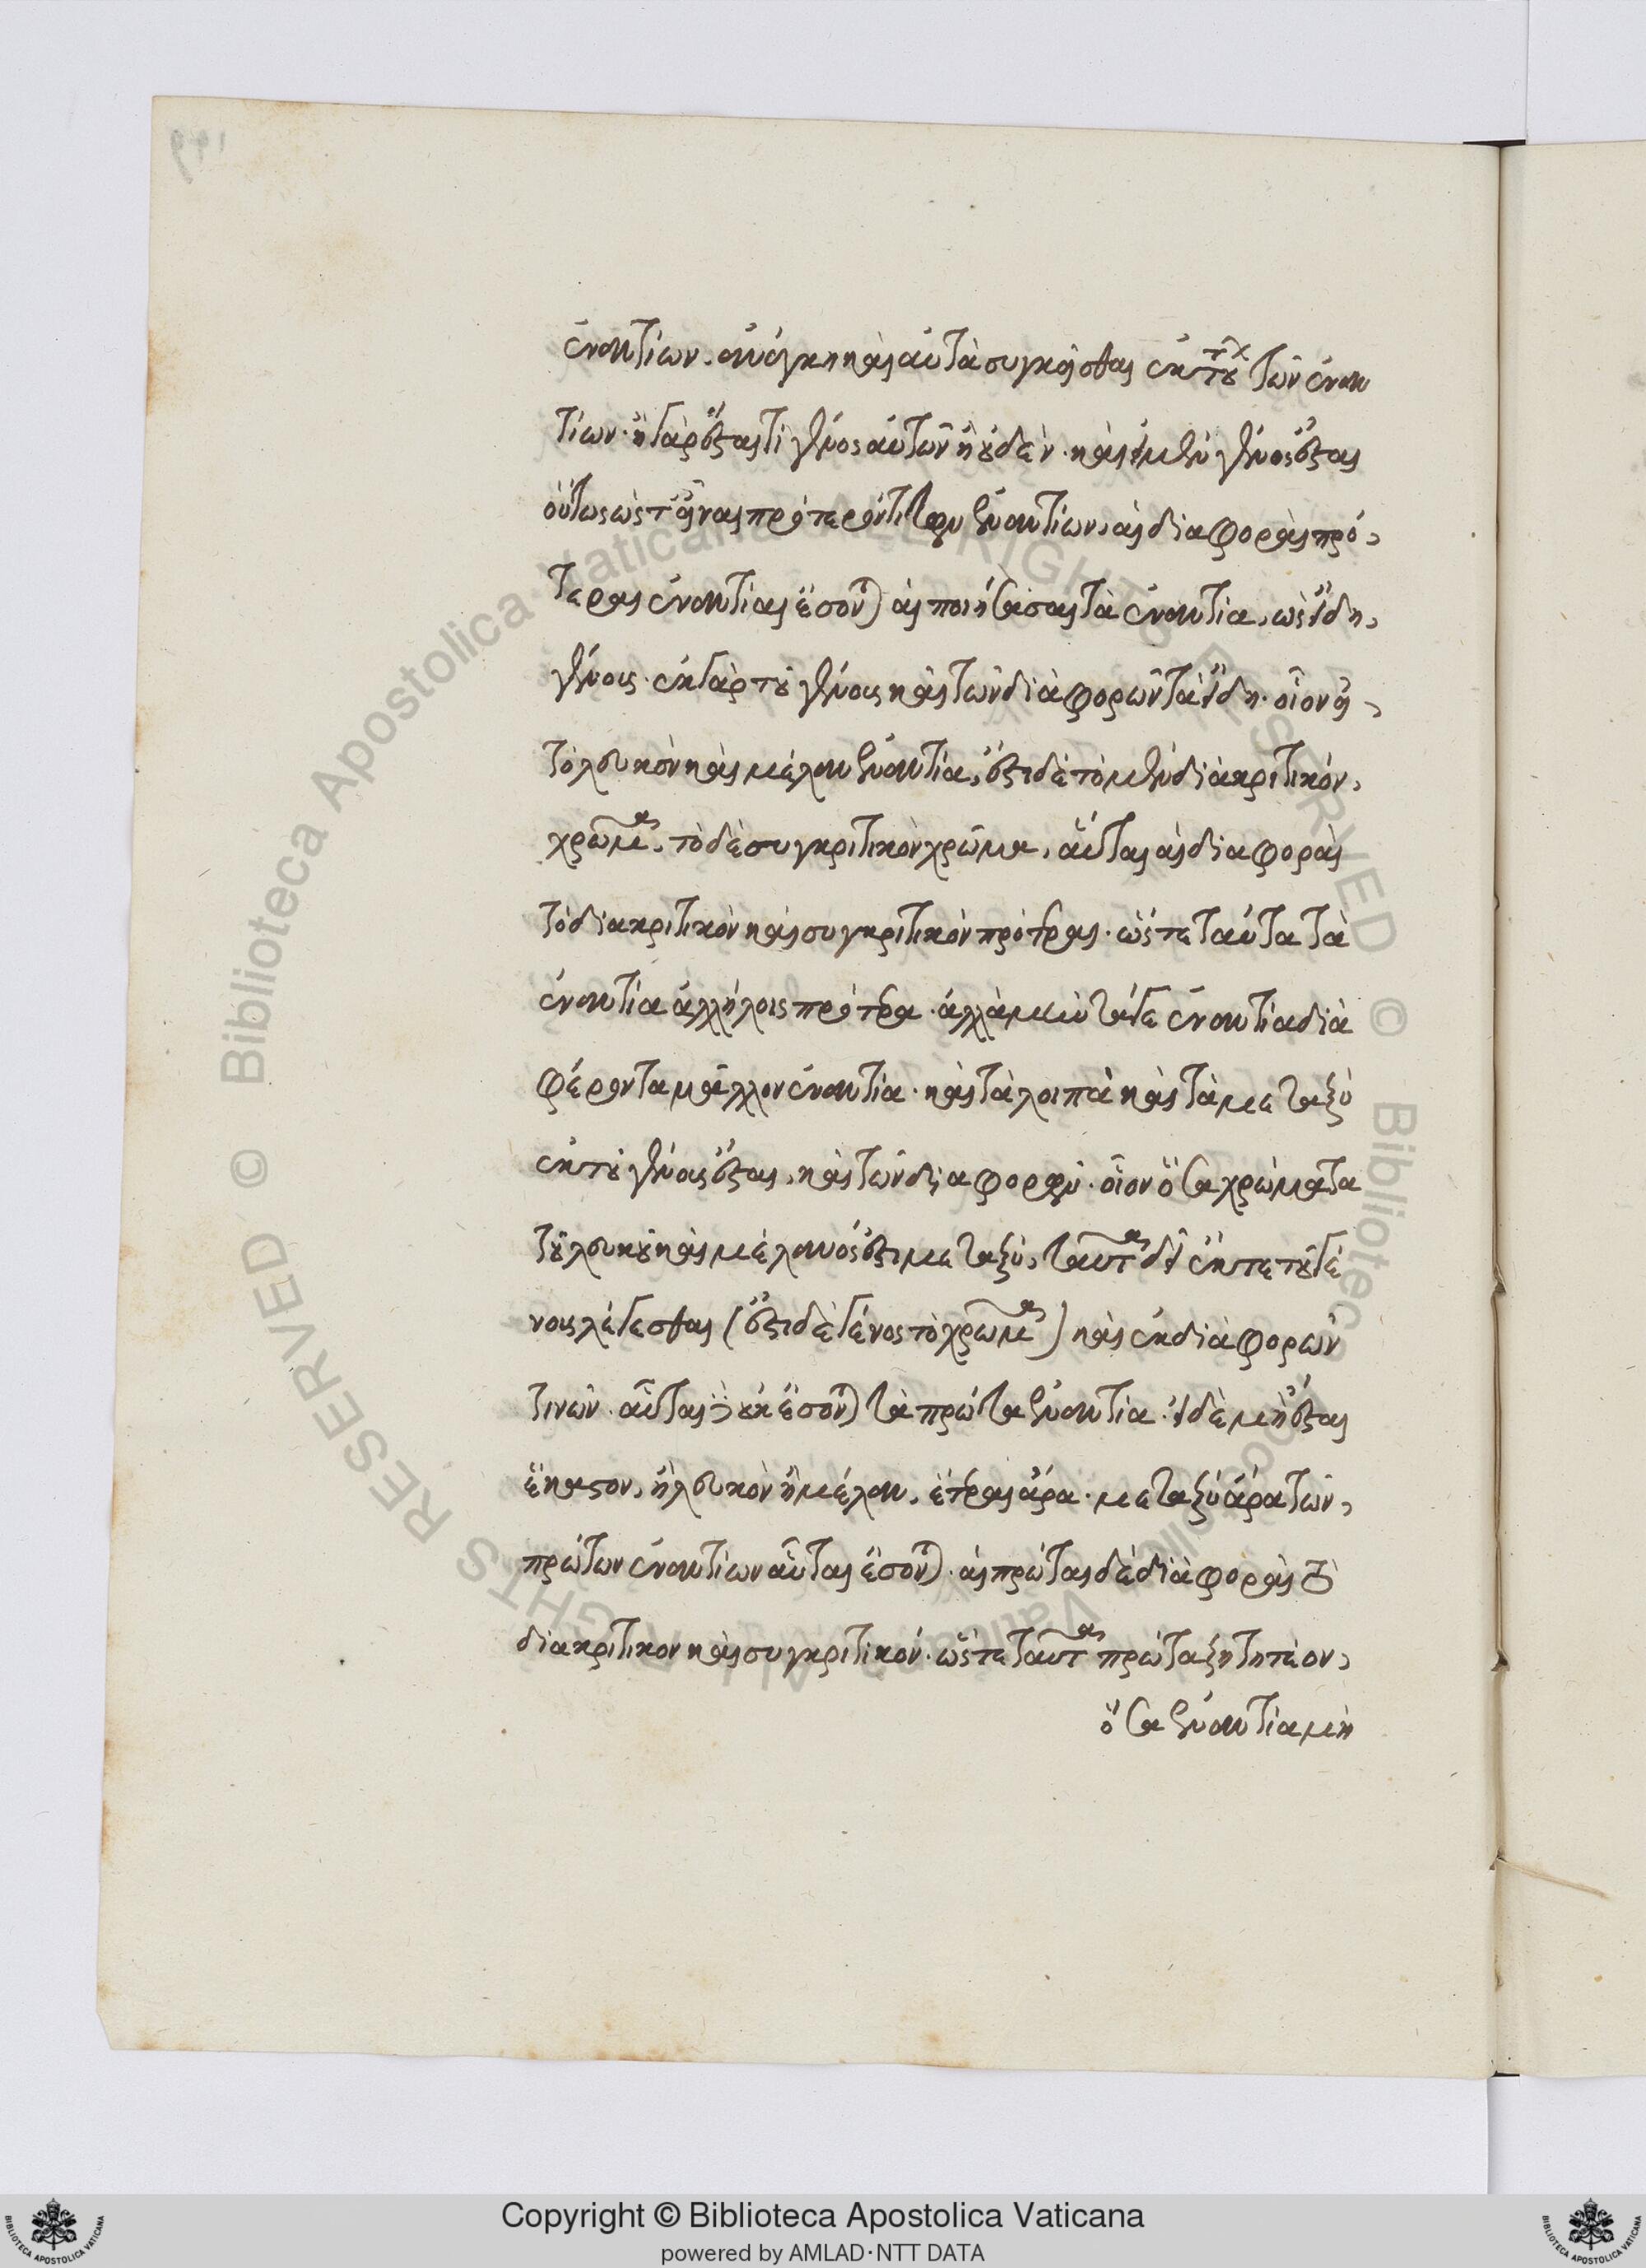 ἐναντίων. ἀνάγκη καὶ αὐτὰ συγκεῖσθαι ἐκ τούτων τῶν ἐναν
τίων. ἢ γὰρ ἔσται τὶ γένος αὐτῶν ἢ οὐδέν. καὶ εἰ μὲν γένος ἔσται
οὕτως ὥστ' εἶναι πρότερόν τι τῶν ἐναντίων, αἱ διαφοραὶ πρό,
τεραι ἐναντίαι ἔσονται αἱ ποιήσασαι τὰ ἐναντία, ὡς εἴδη,
γένους. ἐκ γὰρ τοῦ γένους καὶ τῶν διαφορῶν τὰ εἴδη. οἷον εἰ,
τὸ λευκὸν καὶ μέλαν ἐναντία, ἔστι δὲ τὸ μὲν διακριτικόν,
χρῶμα, τὸ δὲ συγκριτικὸν χρῶμα, αὗται αἱ διαφοραὶ
τὸ διακριτικὸν καὶ συγκριτικὸν πρότεραι. ὥστε ταῦτα τὰ
ἐναντία ἀλλήλοις πρότερα. ἀλλὰ μὴν τά γε ἐναντία διὰ
φέροντα μᾶλλον ἐναντία. καὶ τὰ λοιπὰ καὶ τὰ μεταξὺ
ἐκ τοῦ γένους ἔσται, καὶ τῶν διαφορῶν. οἷον ὅσα χρώματα
τοῦ λευκοῦ καὶ μέλανός ἐστι μεταξύ, ταῦτα δεῖ ἔκ τε τοῦ γέ
νους λέγεσθαι (ἔστι δὲ γένος τὸ χρῶμα) καὶ ἐκ διαφορῶν
τινῶν. αὗται δὲ οὐκ ἔσονται τὰ πρῶτα ἐναντία. εἰ δὲ μὴ ἔσται
ἕκαστον, ἢ λευκὸν ἢ μέλαν. ἕτεραι ἄρα. μεταξὺ ἄρα τῶν,
πρώτων ἐναντίων αὗται ἔσονται. αἱ πρῶται δὲ διαφοραὶ τὸ
διακριτικον καὶ συγκριτικόν. ὥστε ταῦτα πρῶτα ζητητέον,
ὅσα ἐναντία μὴ
Copyright © Biblioteca Apostolica Vaticana
powered by AMLAD·NTT DATA